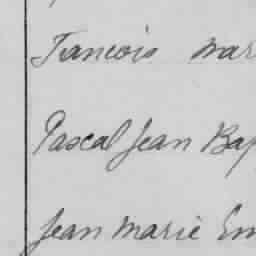 Francois mar
Pascal Jean Bap
Jean Marie Em